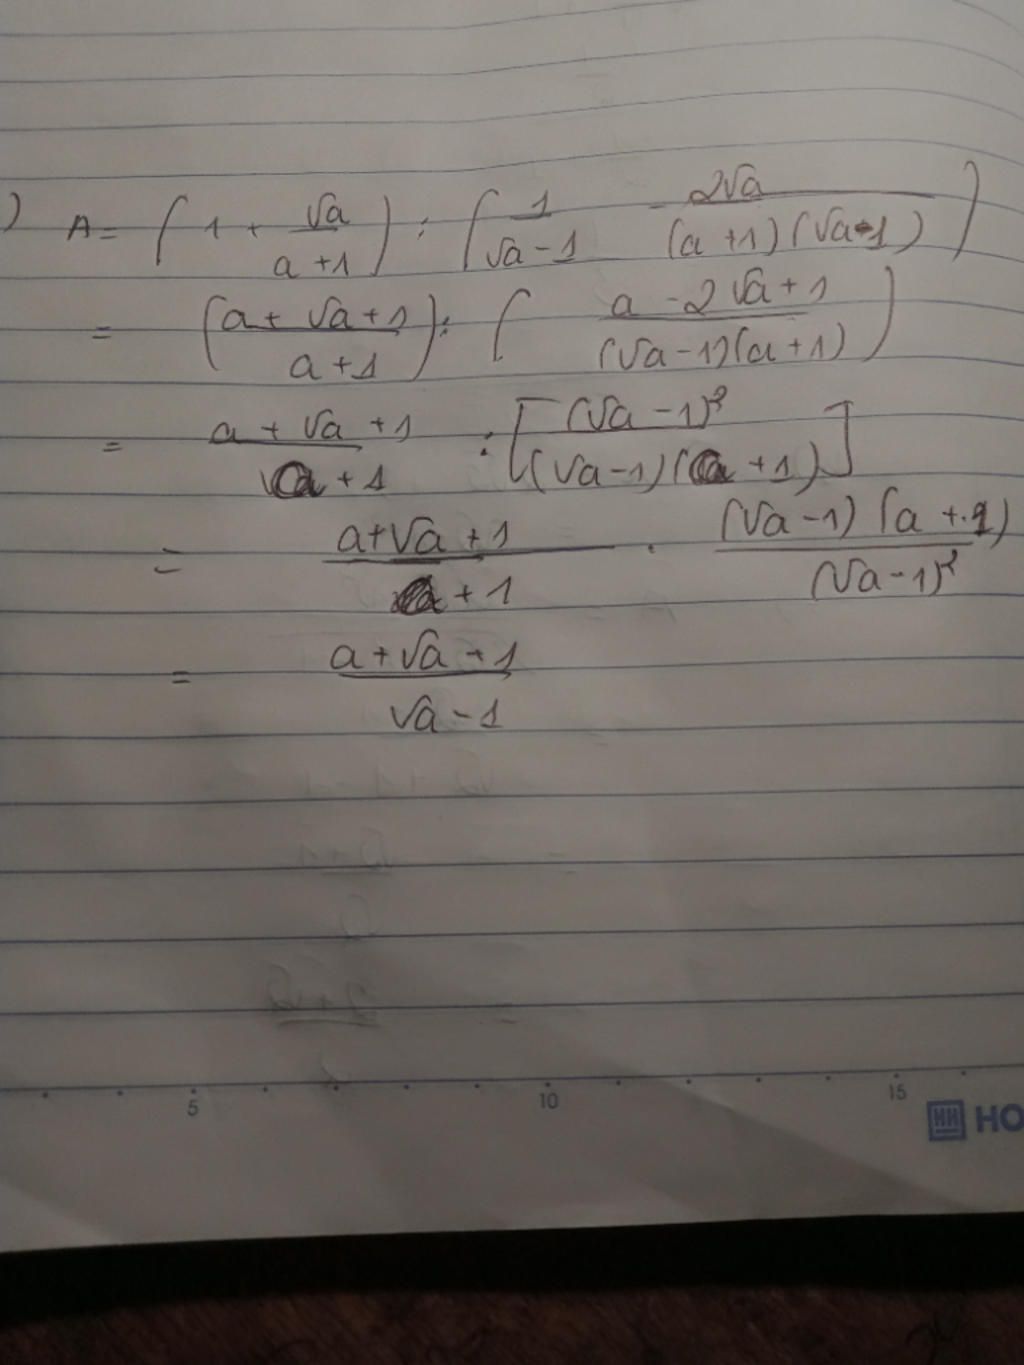 ) A = ( 1 + √a / a+1 ) : ( 1 / √a - 1 - 2√a / (a+1)(√a-1) )
= ( a + √a + 1 / a+1 ) : ( a - 2√a + 1 / (√a-1)(a+1) )
= a + √a + 1 / a + 1 : [ (√a - 1)² / (√a-1)(a+1) ]
= a+√a+1 / a + 1 . (√a-1)(a+1) / (√a-1)²
= a+√a+1 / √a-1
5 10 15
HO